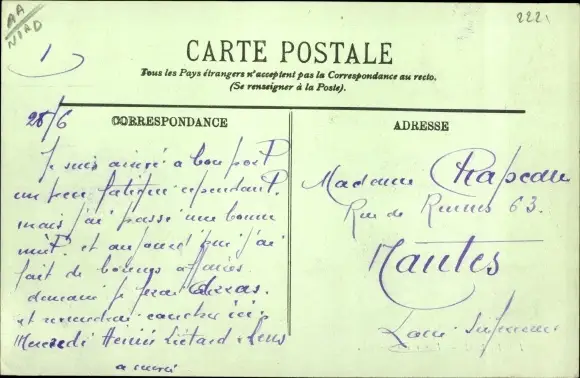 AA
NORD
1
2221
CARTE POSTALE
Tous les Pays étrangers n'acceptent pas la Correspondance au recto.
(Se renseigner à la Poste).
28/6
CORRESPONDANCE
Je suis arrivé a bon port
un peu fatigué cependant.
mais j'ai passé une bonne
nuit. et aujourd'hui j'ai
fait de bonnes affaires
demain je ferai Arras.
et reviendrai coucher ici.
Mercredi Hénin Liétard & Lens
a suivre
ADRESSE
Madame Chapeau
Rue de Rennes 63.
Nantes
Loire Inférieure